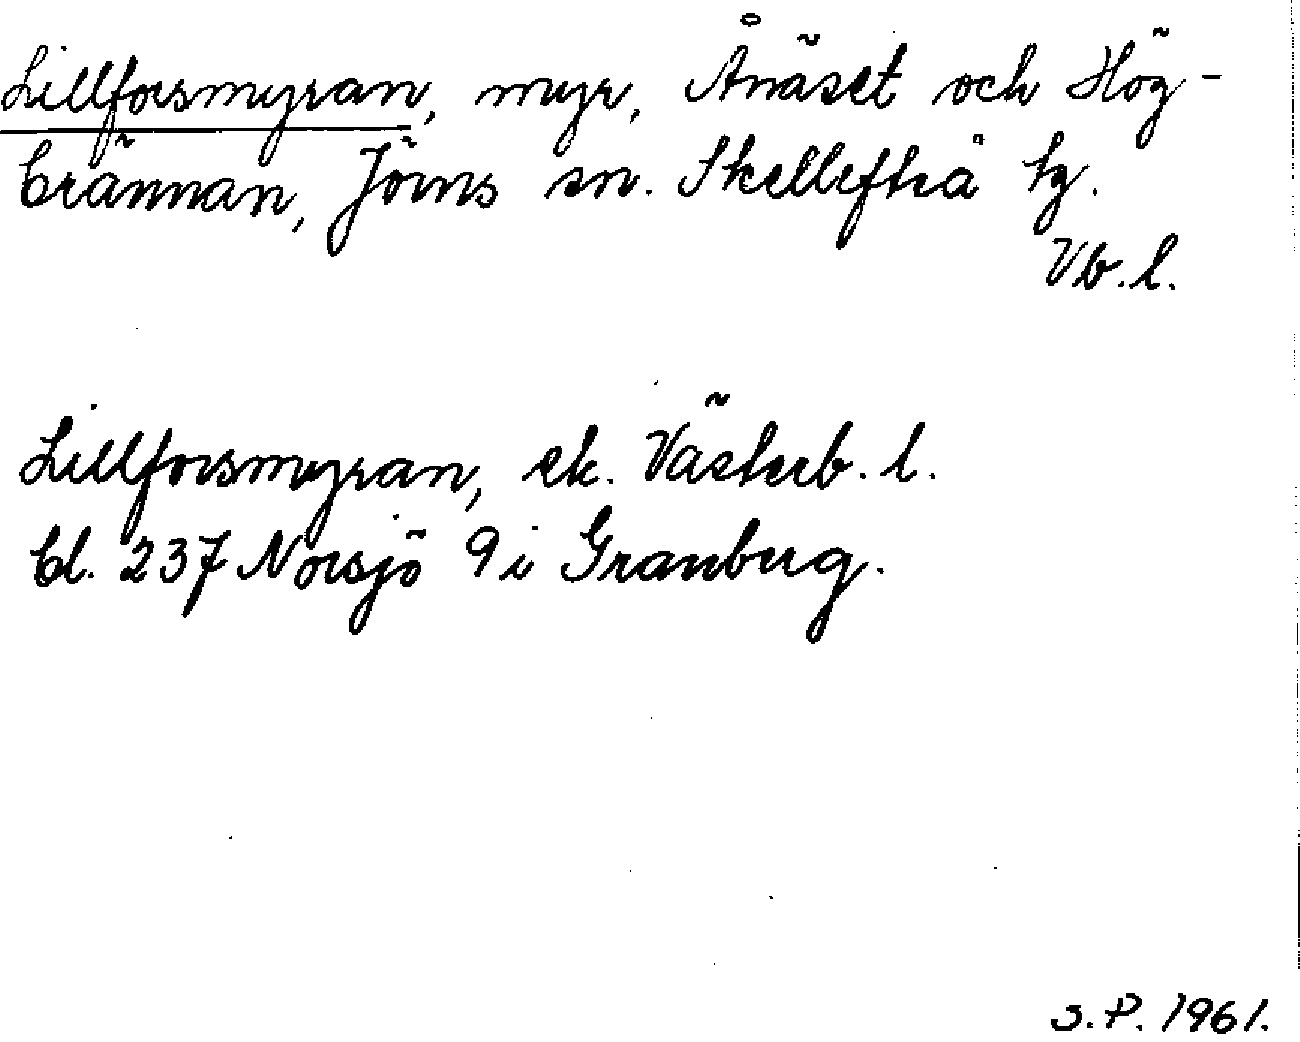 Lillforsmyran, myr, Ånäset och Hög-
brännan, Jörns sn. Skellefteå tg.
Vb. l.
Lillforsmyran, ek. Västerb. l.
bl. 237 Norsjö 9 i Granberg.
S. P. 1961.